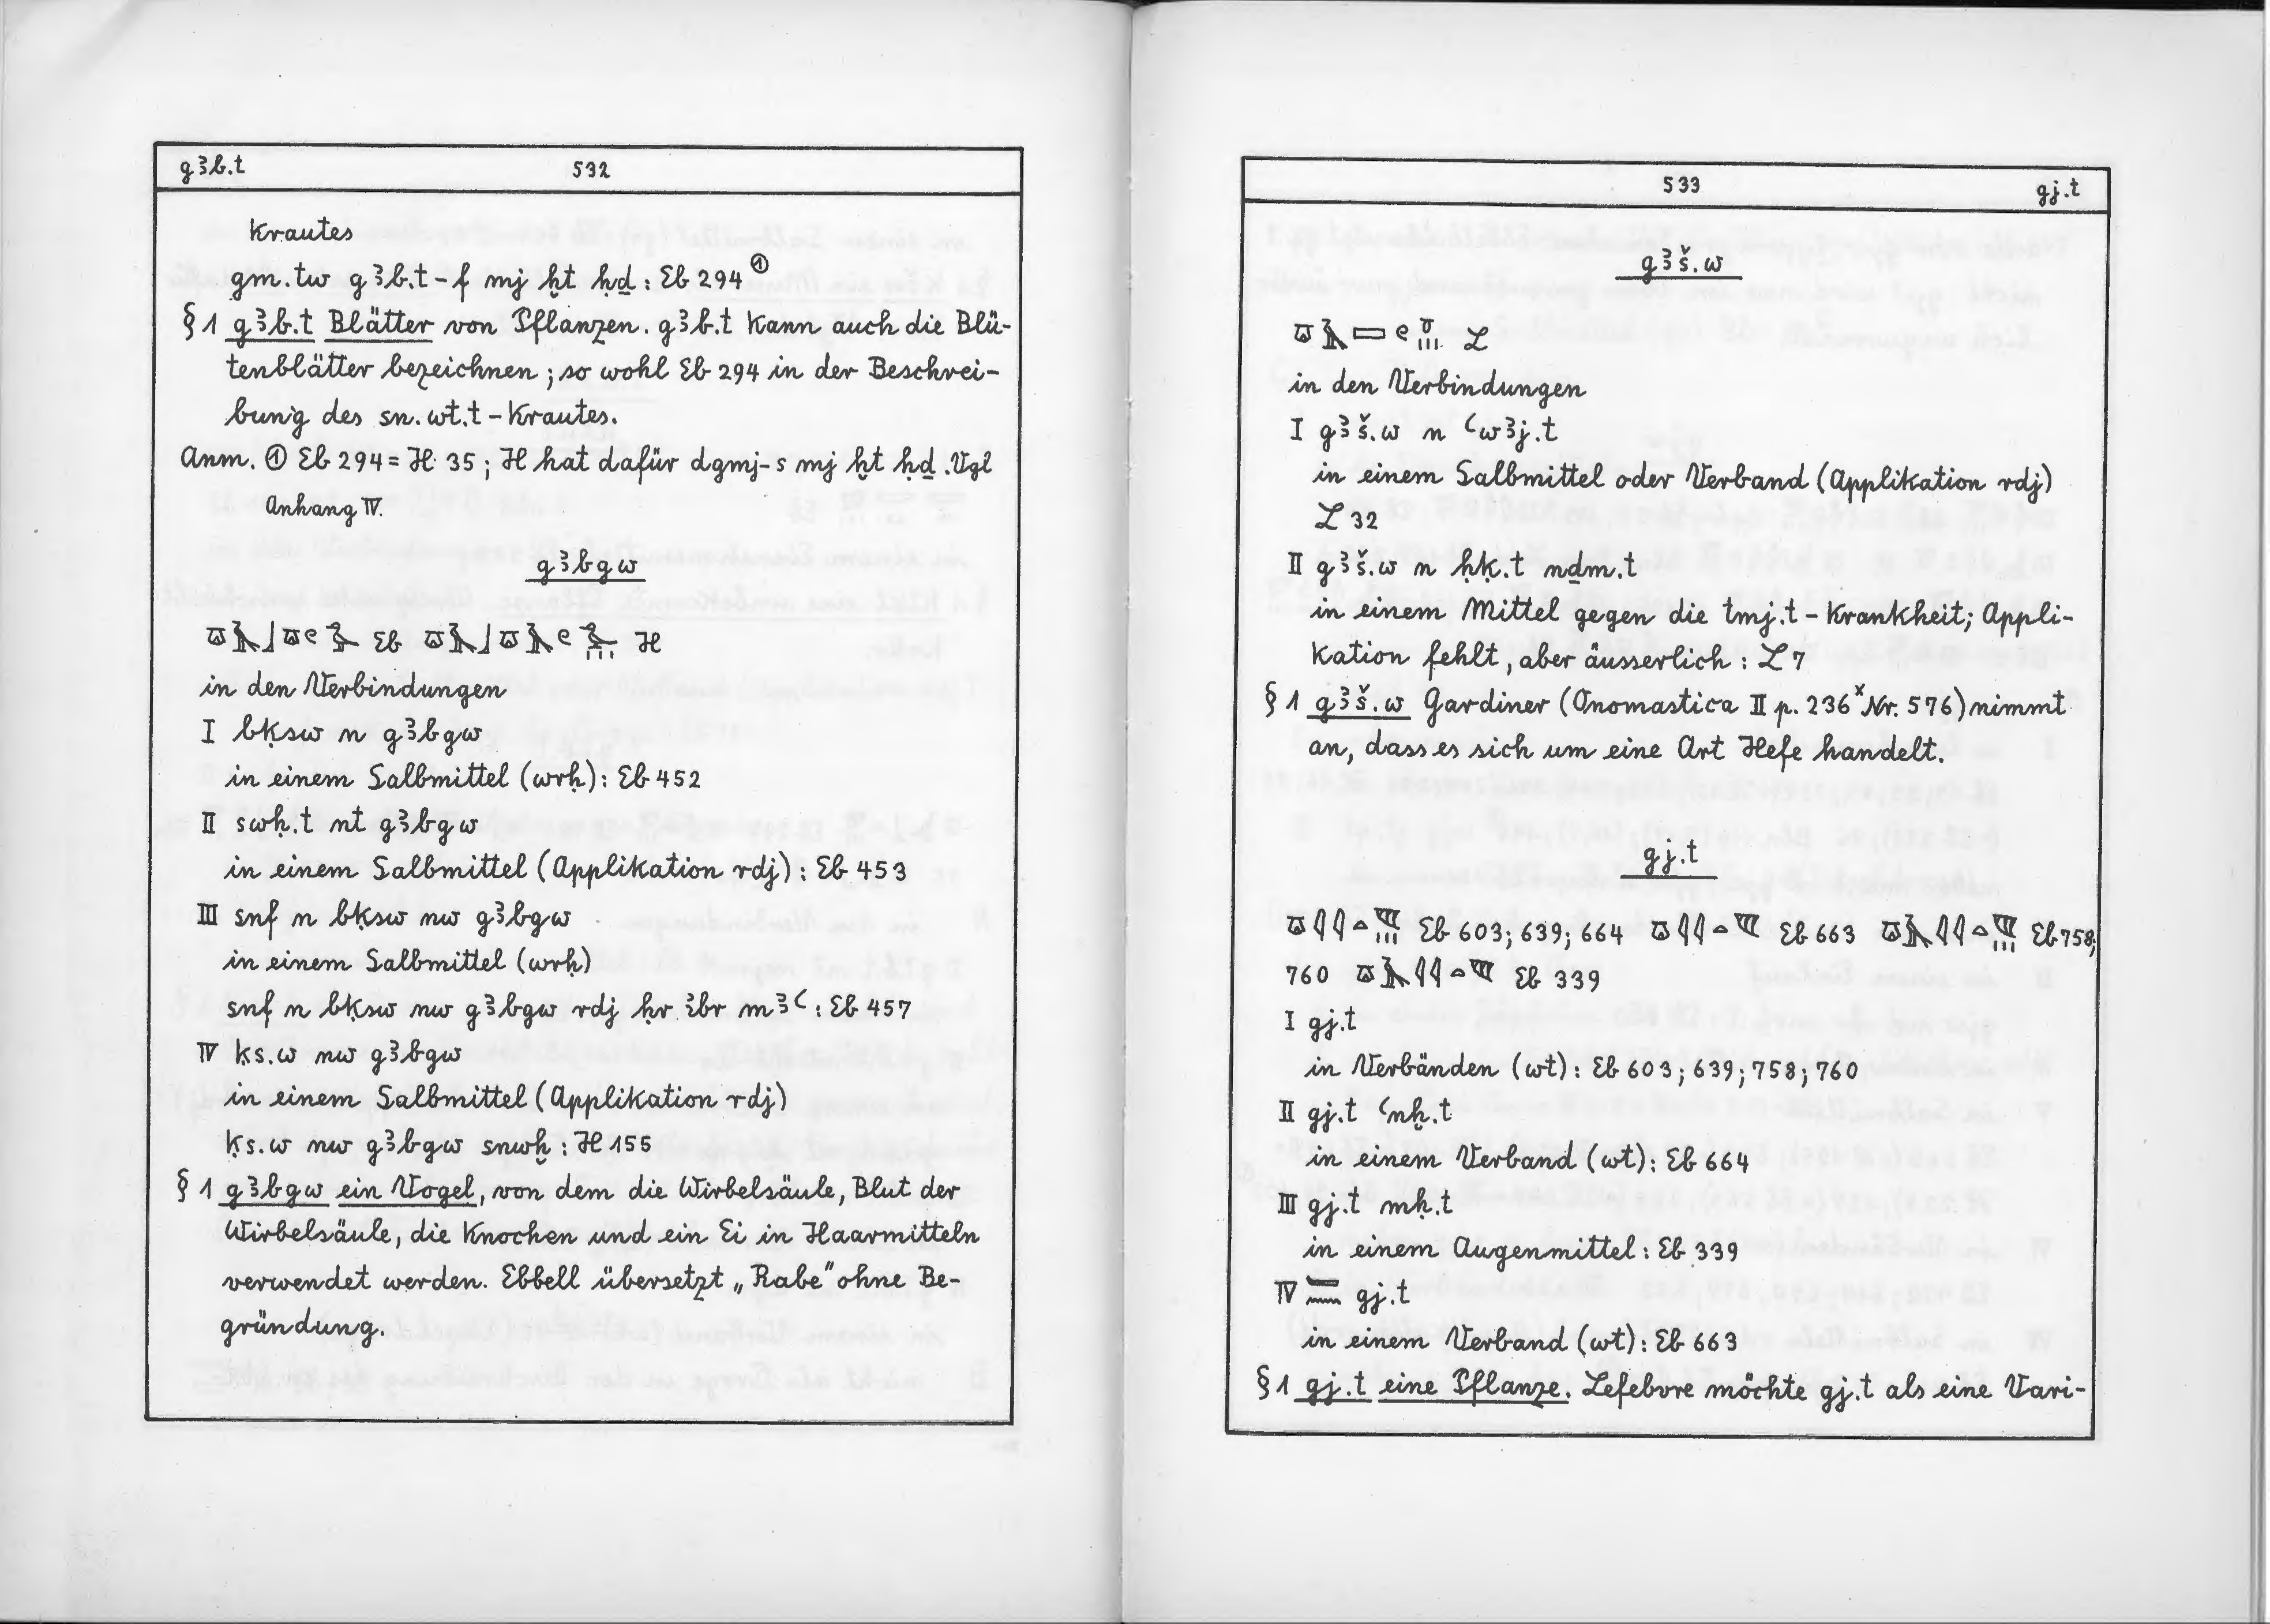 gꜣb.t 532
Krautes
gm.tw gꜣb.t-f mj ḫt ḥḏ : Eb 294 ①
§ 1 gꜣb.t Blätter von Pflanzen. gꜣb.t kann auch die Blü-
tenblätter bezeichnen ; so wohl Eb 294 in der Beschrei-
bung des sn.wt.t-Krautes.
Anm. ① Eb 294 = H 35 ; H hat dafür dgmj-s mj ḫt ḥḏ . Vgl
Anhang IV.
gꜣbgw
Eb H
in den Verbindungen
I bḳsw n gꜣbgw
in einem Salbmittel (wrḥ) : Eb 452
II swḥ.t nt gꜣbgw
in einem Salbmittel (Applikation rdj) : Eb 453
III snf n bḳsw nw gꜣbgw
in einem Salbmittel (wrḥ)
snf n bḳsw nw gꜣbgw rdj ḥr ibr mꜣꜥ : Eb 457
IV ḳs.w nw gꜣbgw
in einem Salbmittel (Applikation rdj)
ḳs.w nw gꜣbgw snwḫ : H 155
§ 1 gꜣbgw ein Vogel, von dem die Wirbelsäule, Blut der
Wirbelsäule, die Knochen und ein Ei in Haarmitteln
verwendet werden. Ebbell übersetzt „Rabe" ohne Be-
gründung.
533 gj.t
gꜣš.w
L
in den Verbindungen
I gꜣš.w n ꜥwꜣj.t
in einem Salbmittel oder Verband (Applikation rdj)
L 32
II gꜣš.w n ḥḳ.t nḏm.t
in einem Mittel gegen die tmj.t-Krankheit; Appli-
kation fehlt, aber äusserlich : L 7
§ 1 gꜣš.w Gardiner (Onomastica II p. 236ˣ Nr. 576) nimmt
an, dass es sich um eine Art Hefe handelt.
gj.t
Eb 603; 639; 664 Eb 663 Eb 758;
760 Eb 339
I gj.t
in Verbänden (wt) : Eb 603 ; 639 ; 758 ; 760
II gj.t ꜥnḫ.t
in einem Verband (wt) : Eb 664
III gj.t mḥ.t
in einem Augenmittel : Eb 339
IV gj.t
in einem Verband (wt) : Eb 663
§ 1 gj.t eine Pflanze. Lefebvre möchte gj.t als eine Vari-